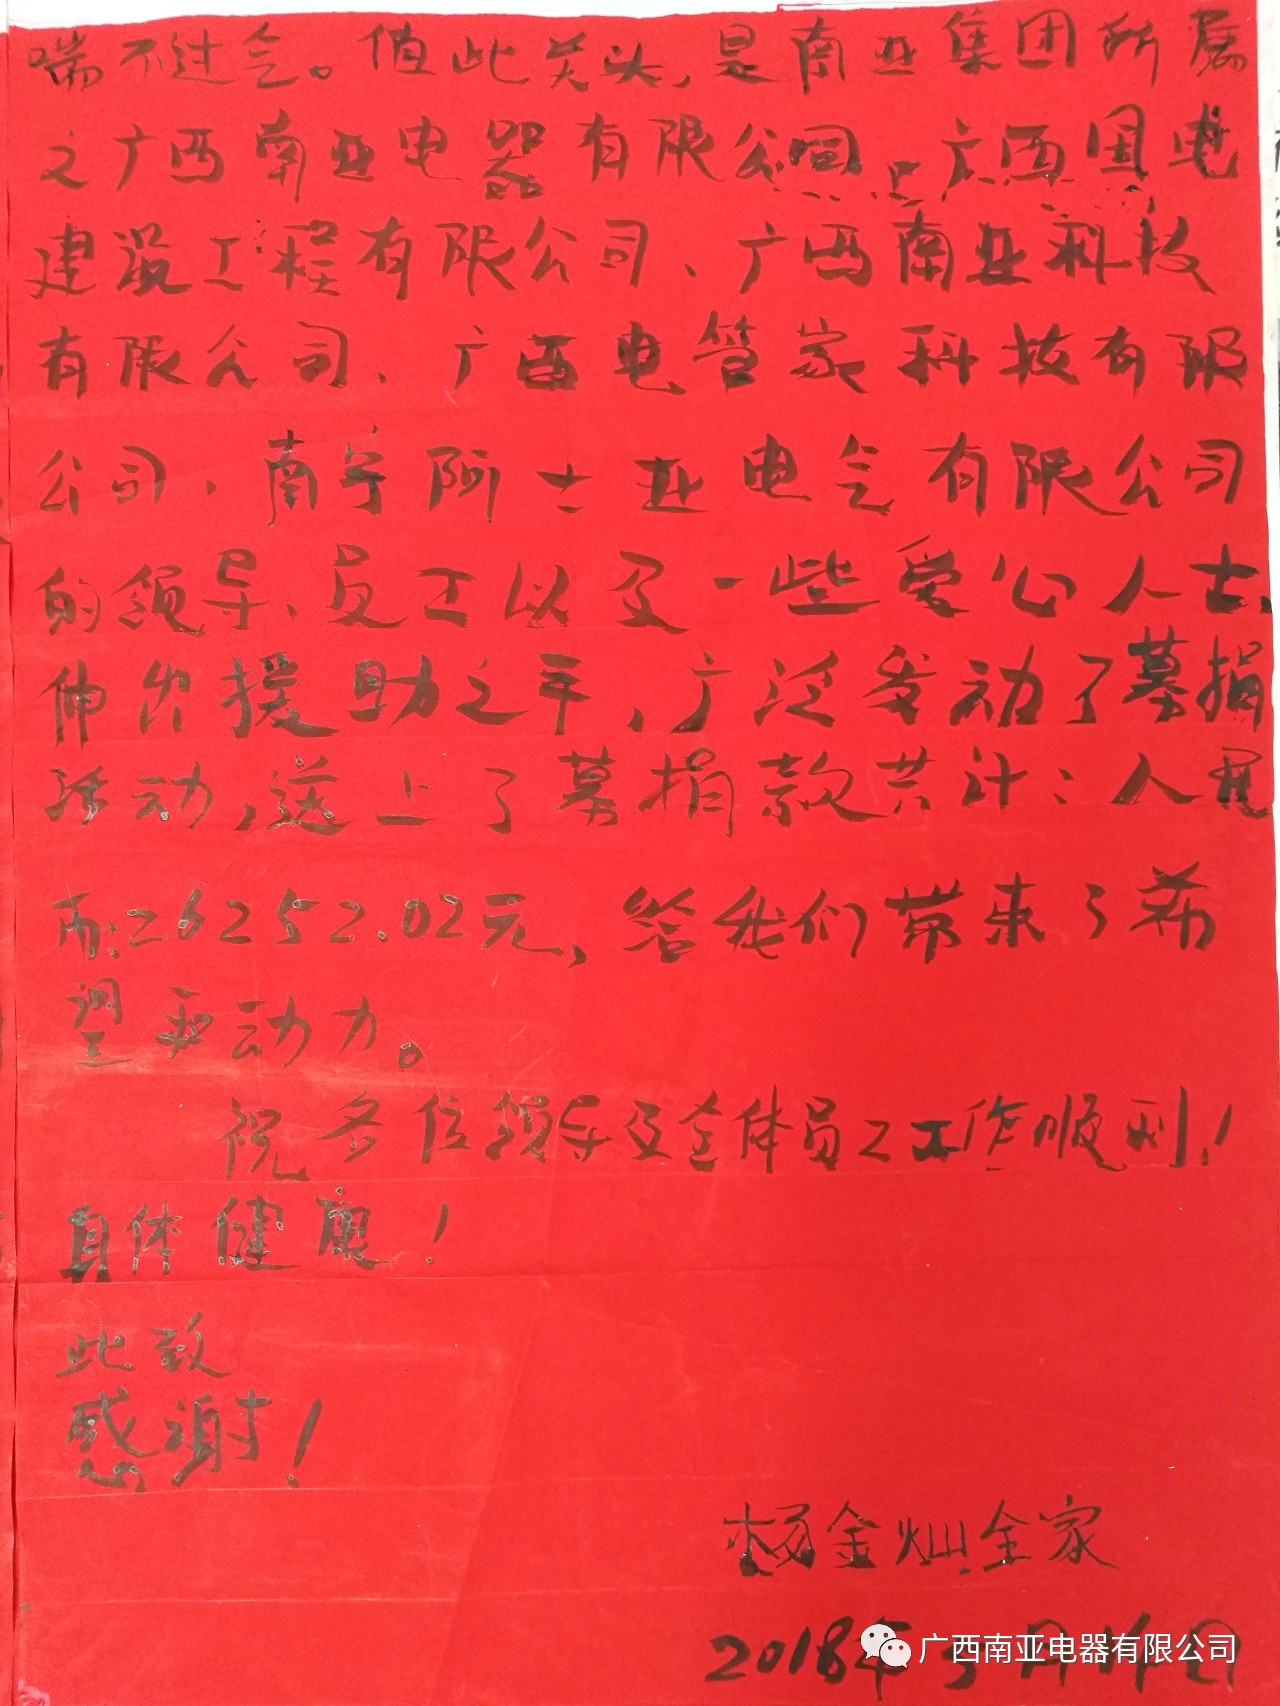 喘不过气。值此关头，是南亚集团所属
之广西南亚电器有限公司、广西国电
建筑工程有限公司、广西南亚科技
有限公司、广西电管家科技有限
公司、南宁阿士亚电气有限公司
的领导、员工以及一些爱心人士，
伸出援助之手，广泛发动了募捐
活动，送上了募捐款共计：人民
币：26252.02元，给我们带来了希
望和动力。
祝各位领导及全体员工工作顺利！
身体健康！
此致
感谢！
杨金灿全家
2018年 月 日
广西南亚电器有限公司